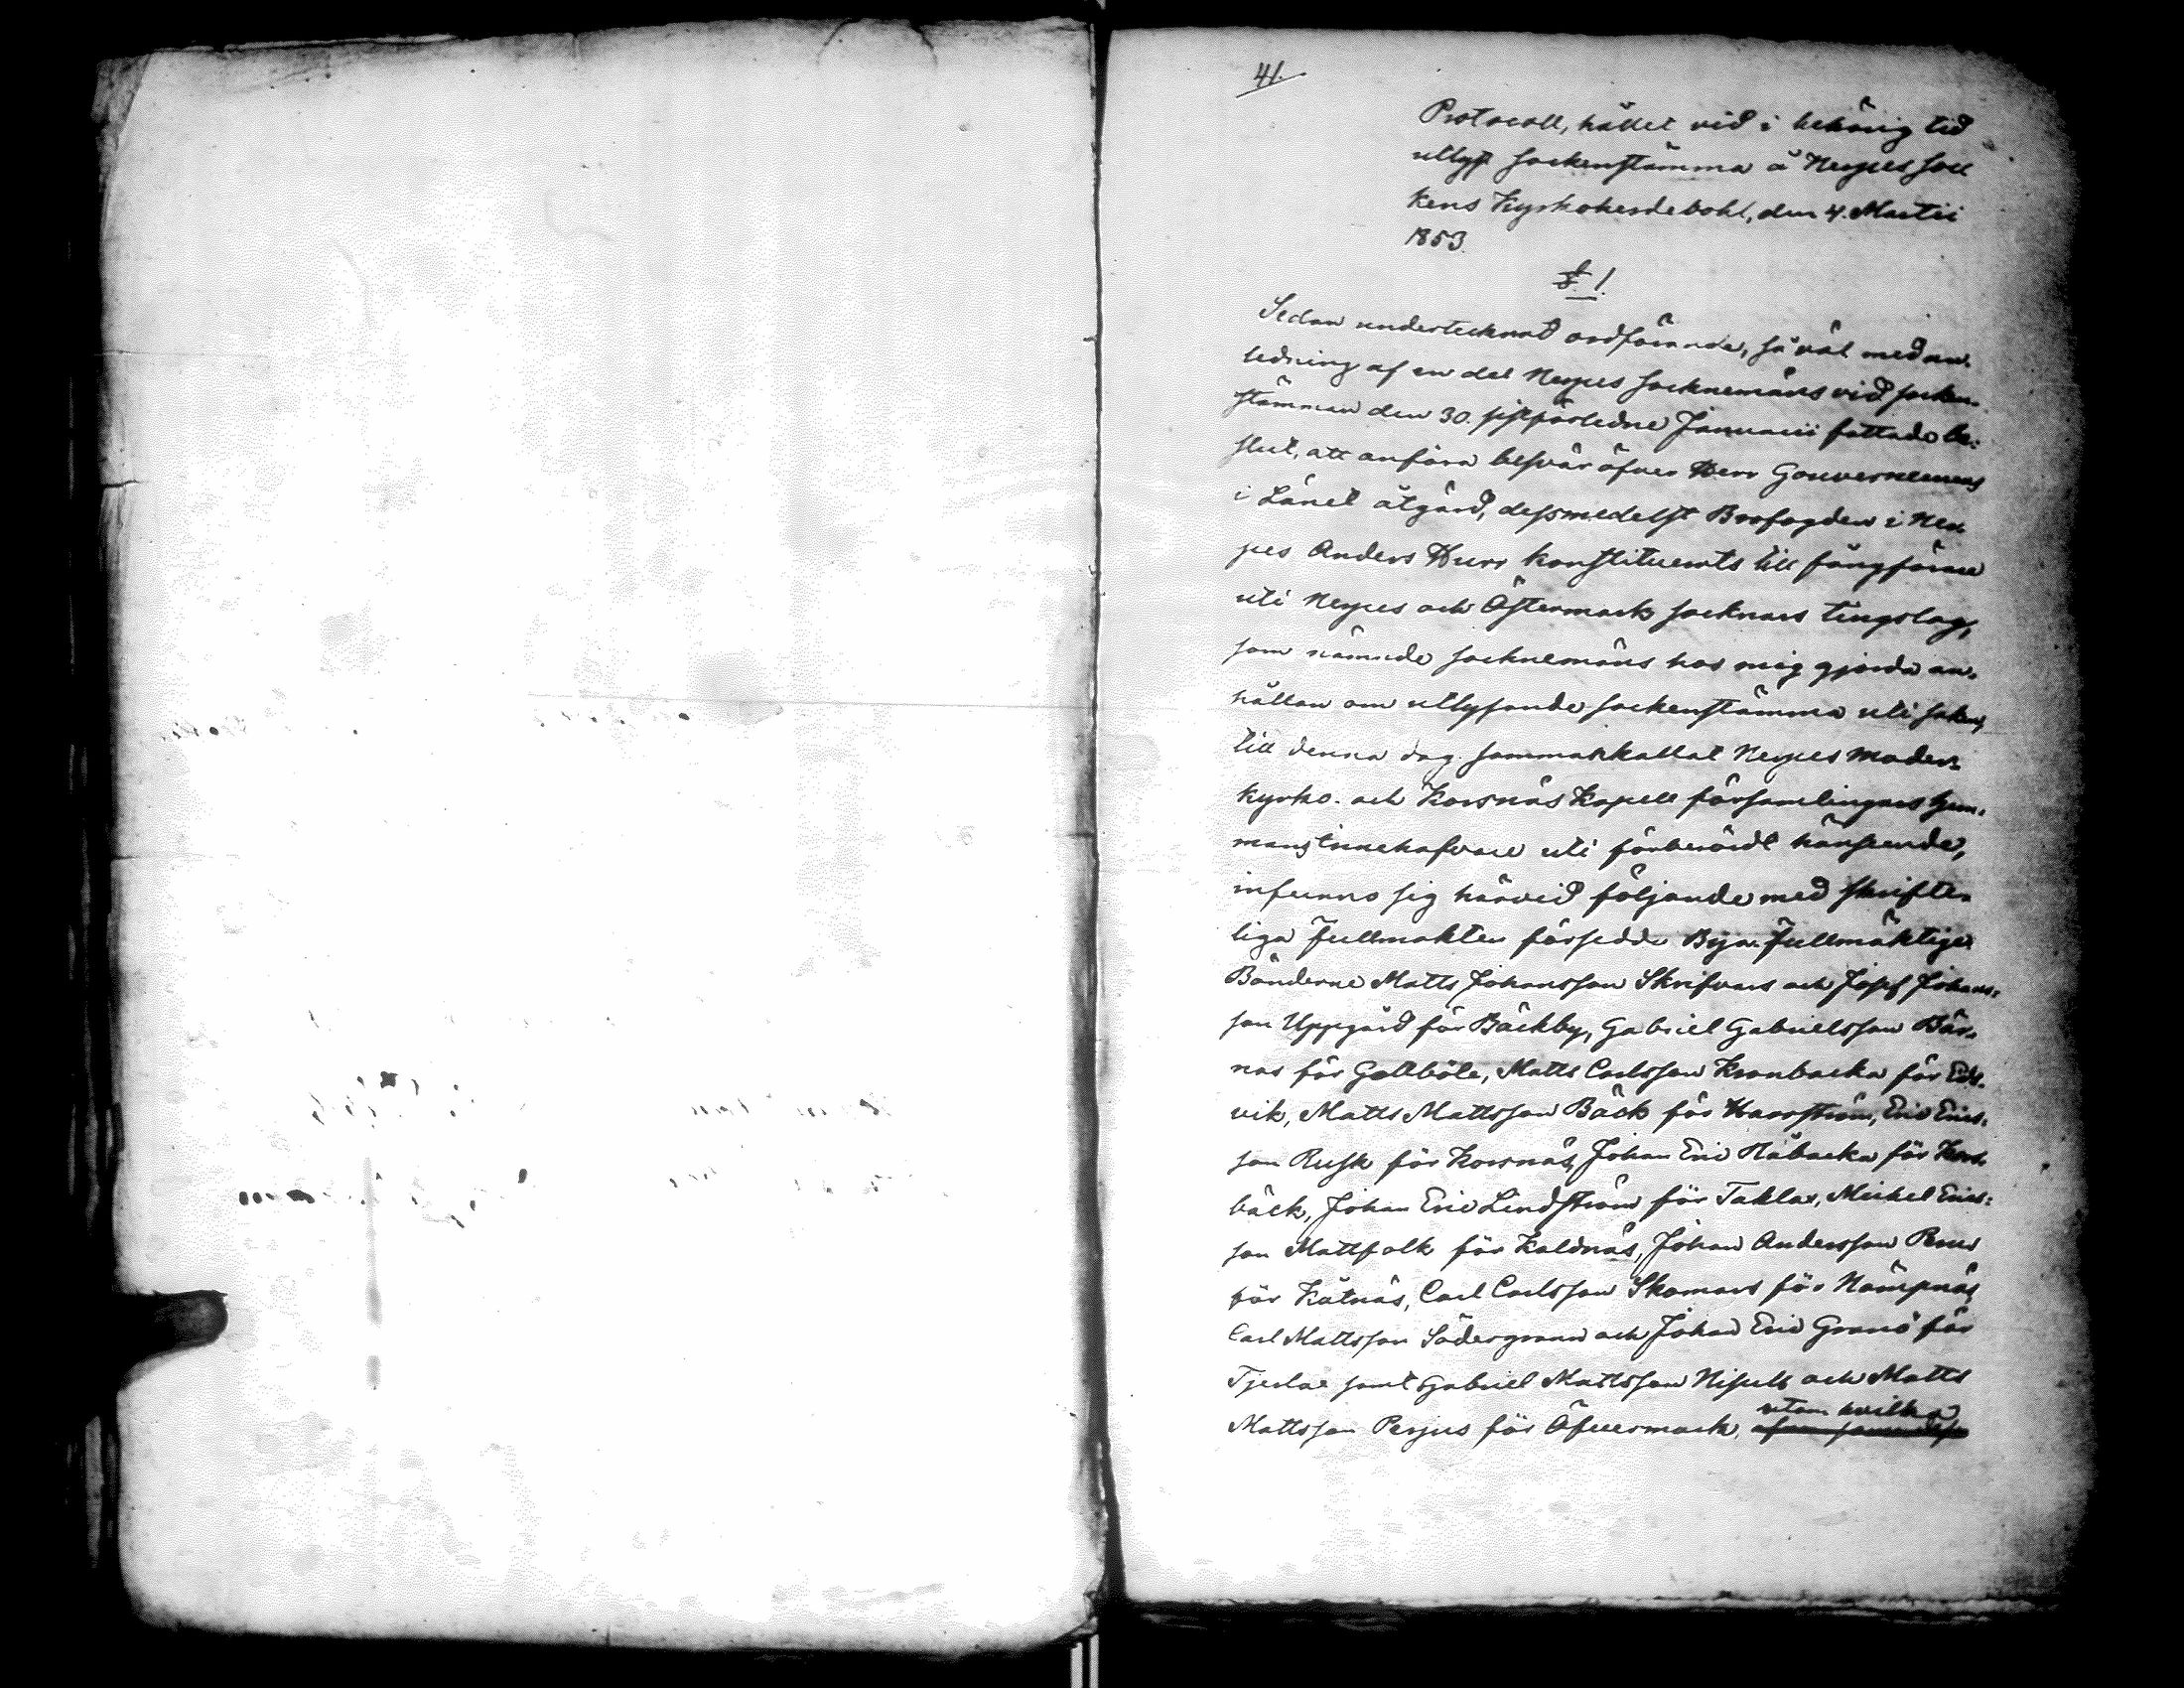 41.
Protocoll, hållet vid i behörig tid
utlyst sockenstämma å Nerpes soc
kens Kyrkoherdebohl, den 4. Martii
1853.
§ 1.
Sedan undertecknad ordförande, så väl med an-
ledning af en del Nerpes socknemäns vid socken-
stämman den 30. sistförledne Januarii fattade be-
slut, att anföra besvär öfver Herr Gouverneurens
i Länet åtgärd, dessmedelst Brofogden i Ner-
pes Anders Hurr konstituerats till fångförare
uti Nerpes och Östermark socknars tingslag,
som nämnde socknemäns hos mig gjorda an-
hållan om utlysande sockenstämma uti saken,
till denna dag sammankallat Nerpes moder-
kyrko- och Korsnäs Kapell församlingars hem-
mansinnehafvare uti förberördt hänseende,
infunno sig härvid följande med skrift-
liga fullmakter försedde Bya-fullmäktige
Bönderne Matts Johansson Skrifvars och Josef Johans-
son Uppgård för Bäckby, Gabriel Gabrielsson Bär-
nas för Gottböle, Matts Carlsson Kronbacka för Eds-
vik, Matts Mattsson Bäck för Harrström, Eric Erics-
son Rusk för Korsnäs, Johan Eric Håbacka för Kors-
bäck, Johan Eric Lindström för Taklax, Mickel Erics-
son Mattfolk för Kaldnäs, Johan Andersson
för Kåtnäs, Carl Carlsson Skomars för Nämpnäs
Carl Mattsson Södergrann och Johan Eric Granö för
Tjerlax samt Gabriel Mattsson Nisula och Matts
utom hvilka
Mattsson Perjus för Öfvermark,